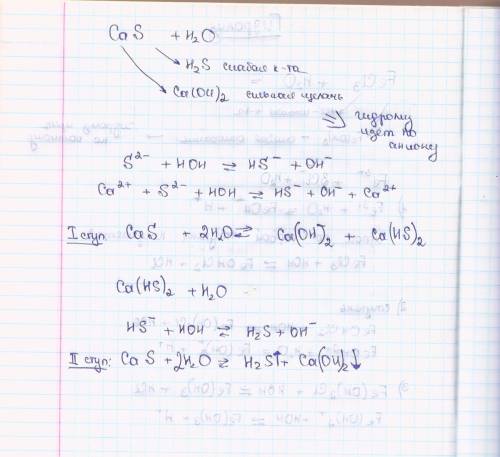 CaS + H₂O
H₂S слабая к-та
Ca(OH)₂ сильная щелочь
=> гидролиз
идет по
аниону
S²⁻ + HOH ⇌ HS⁻ + OH⁻
Ca²⁺ + S²⁻ + HOH ⇌ HS⁻ + OH⁻ + Ca²⁺
I ступ CaS + 2H₂O ⇌ Ca(OH)₂ + Ca(HS)₂
Ca(HS)₂ + H₂O
HS⁻ + HOH ⇌ H₂S + OH⁻
II ступ: CaS + 2H₂O ⇌ H₂S↑ + Ca(OH)₂↓